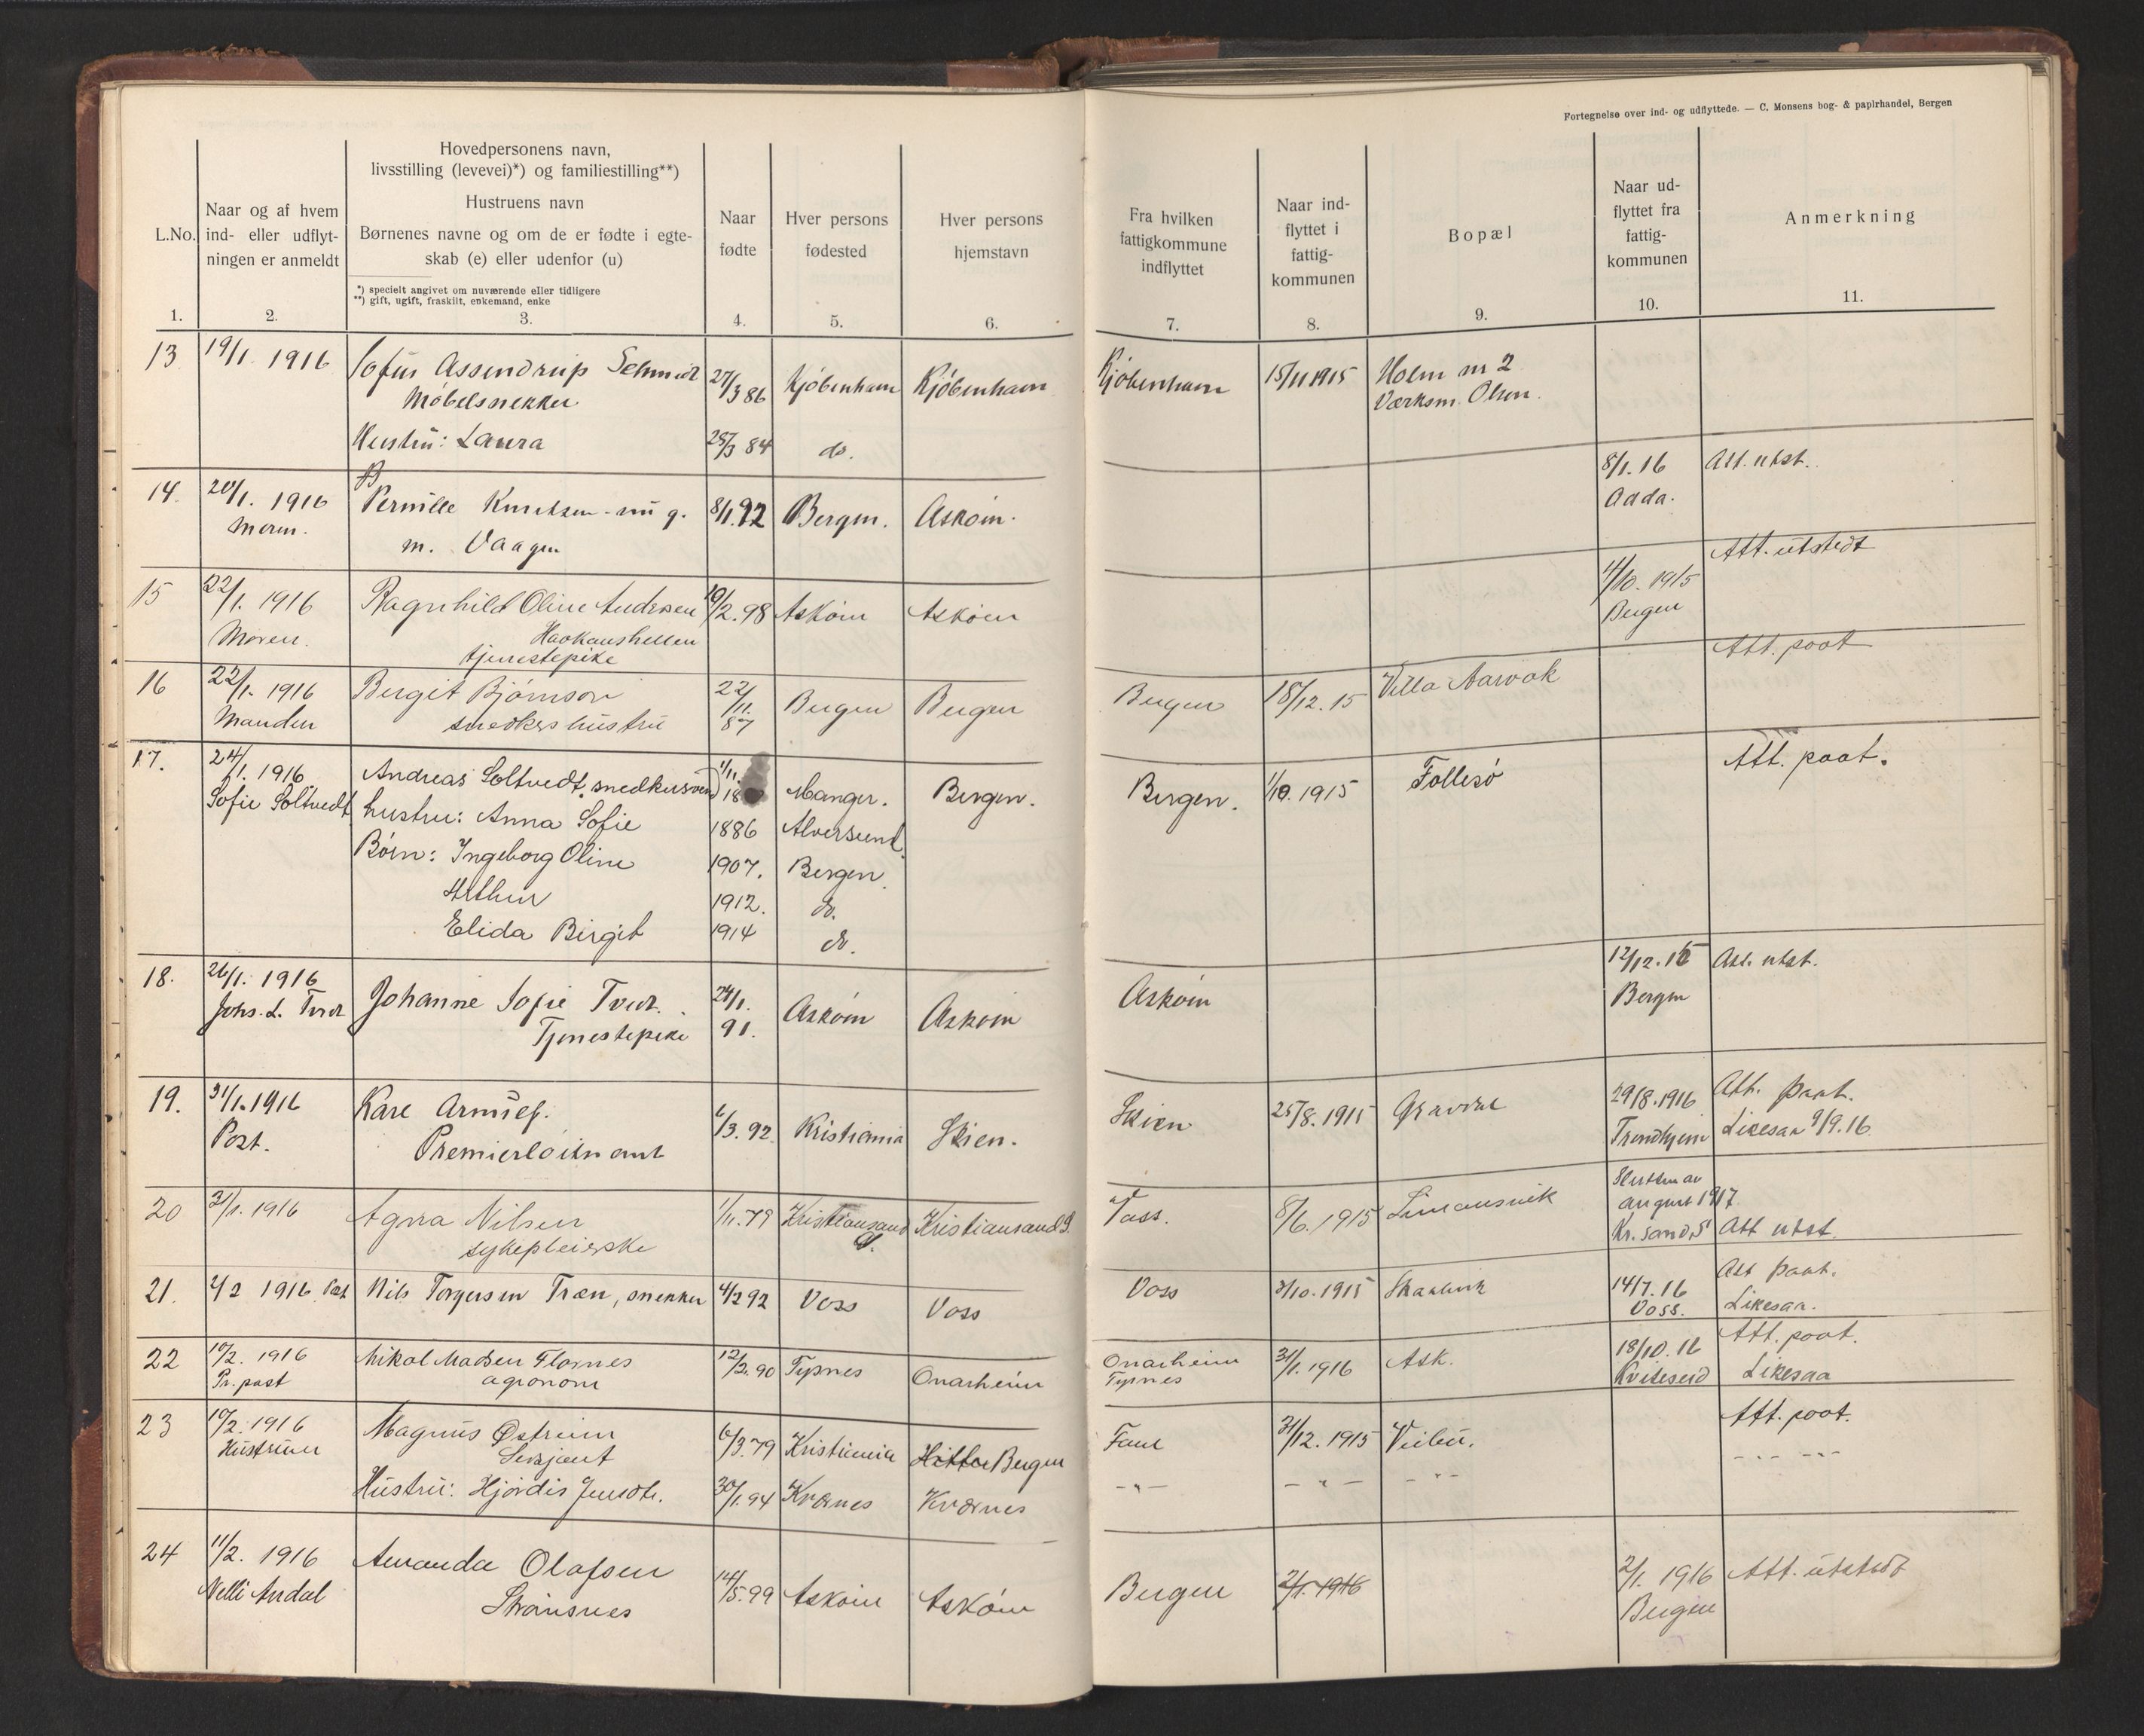 Fortegnelse over ind- og udflyttede. — C. Monsens bog- & papirhandel, Bergen
L.No.
1.
Naar og af hvem
ind- eller udflyt-
ningen er anmeldt
2.
Hovedpersonens navn,
livsstilling (levevei)*) og familiestilling**)
Hustruens navn
Børnenes navne og om de er fødte i egte-
skab (e) eller udenfor (u)
*) specielt angivet om nuværende eller tidligere
**) gift, ugift, fraskilt, enkemand, enke
3.
Naar
fødte
4.
Hver persons
fødested
5.
Hver persons
hjemstavn
6.
Fra hvilken
fattigkommune
indflyttet
7.
Naar ind-
flyttet i
fattig-
kommunen
8.
Bopæl
9.
Naar ud-
flyttet fra
fattig-
kommunen
10.
Anmerkning
11.
13 19/1. 1916 Sofus Assendrup Schmidt 27/3 86 Kjøbenhavn Kjøbenhavn Kjøbenhavn 15/11 1915 Holm nr 2
Møbelsnekker Værksm. Olsen.
Hustru: Laura 28/3 84 do.
14. 20/1. 1916 Pernille Knudsen - nu g. 8/1.92 Bergen. Askøin. 8/1.16 Att. utst.
Moren. m. Vaagen Odda.
15 22/1. 1916 Ragnhild Oline Andersen 19/2.98 Askøin Askøin 4/10. 1915 Att. utstedt
Moren. Haakanshellen Bergen
tjenestepike
16 22/1. 1916 Bergit Bjørnson 22/11. 87 Bergen Bergen Bergen 18/12. 15 Villa Aarvak Att. paat
Manden snedkers hustru
17. 24/1. 1916 Andreas Soltvedt, snedkersvend 1/11. 18 Manger. Bergen. Bergen. 1/10. 1915 Follesø Att. paat.
Sofie Soltvedt hustru: Anna Sofie 1886 Alversund.
Børn: Ingeborg Oline 1907. Bergen.
Arthur 1912. do.
Elida Birgit 1914 do.
18. 26/1. 1916 Johanne Sofie Tveit. 24/1. 91. Askøin Askøin Askøin 12/12. 15 Att. utst.
Johs. L. Tveit Tjenestepike Bergen
19. 31/1. 1916 Kare 6/3. 92 Kristiania Skien. Skien 25/8. 1915 Gravdal 29/8. 1916 Att. paat.
Post. Premierløitnant Trondhjem Likesaa 9/9.16
20 31/1. 1916 Agna Nilsen 1/11.79 Kristiansand S. Kristiansand S. Vass. 8/6. 1915 Slutten av
august 1917
sykepleierske Kr. sand S Att utst.
21. 2/2 1916 Post Nils Torgersen Træn, snekker 4/2 92 Voss Voss Voss 3/10. 1915 Skaalvik 14/7. 16 Att paat.
Voss. Likesaa.
22 10/2. 1916 Nikol Madsen Flornes 12/2. 90 Tysnes Onarheim Onarheim 31/1. 1916 Ask. 18/10. 16 Att. paat.
Pr. post agronom Tysnes Kviteseid Likesaa
23 10/2. 1916 Magnus Østreim 6/3. 79 Kristiania Hitten Bergen Fane 31/12. 1915 Att. paat.
Hustruen Sersjant
Hustru: Hjørdis Jensdtr. 30/1. 94 Kvernes Kvernes
24 11/2. 1916 Amanda Olafsen 14/5. 99 Askøin Askøin Bergen 2/1. 1916 2/1. 1916 Att. utstedt
Nelli Andal Strønsnes Bergen